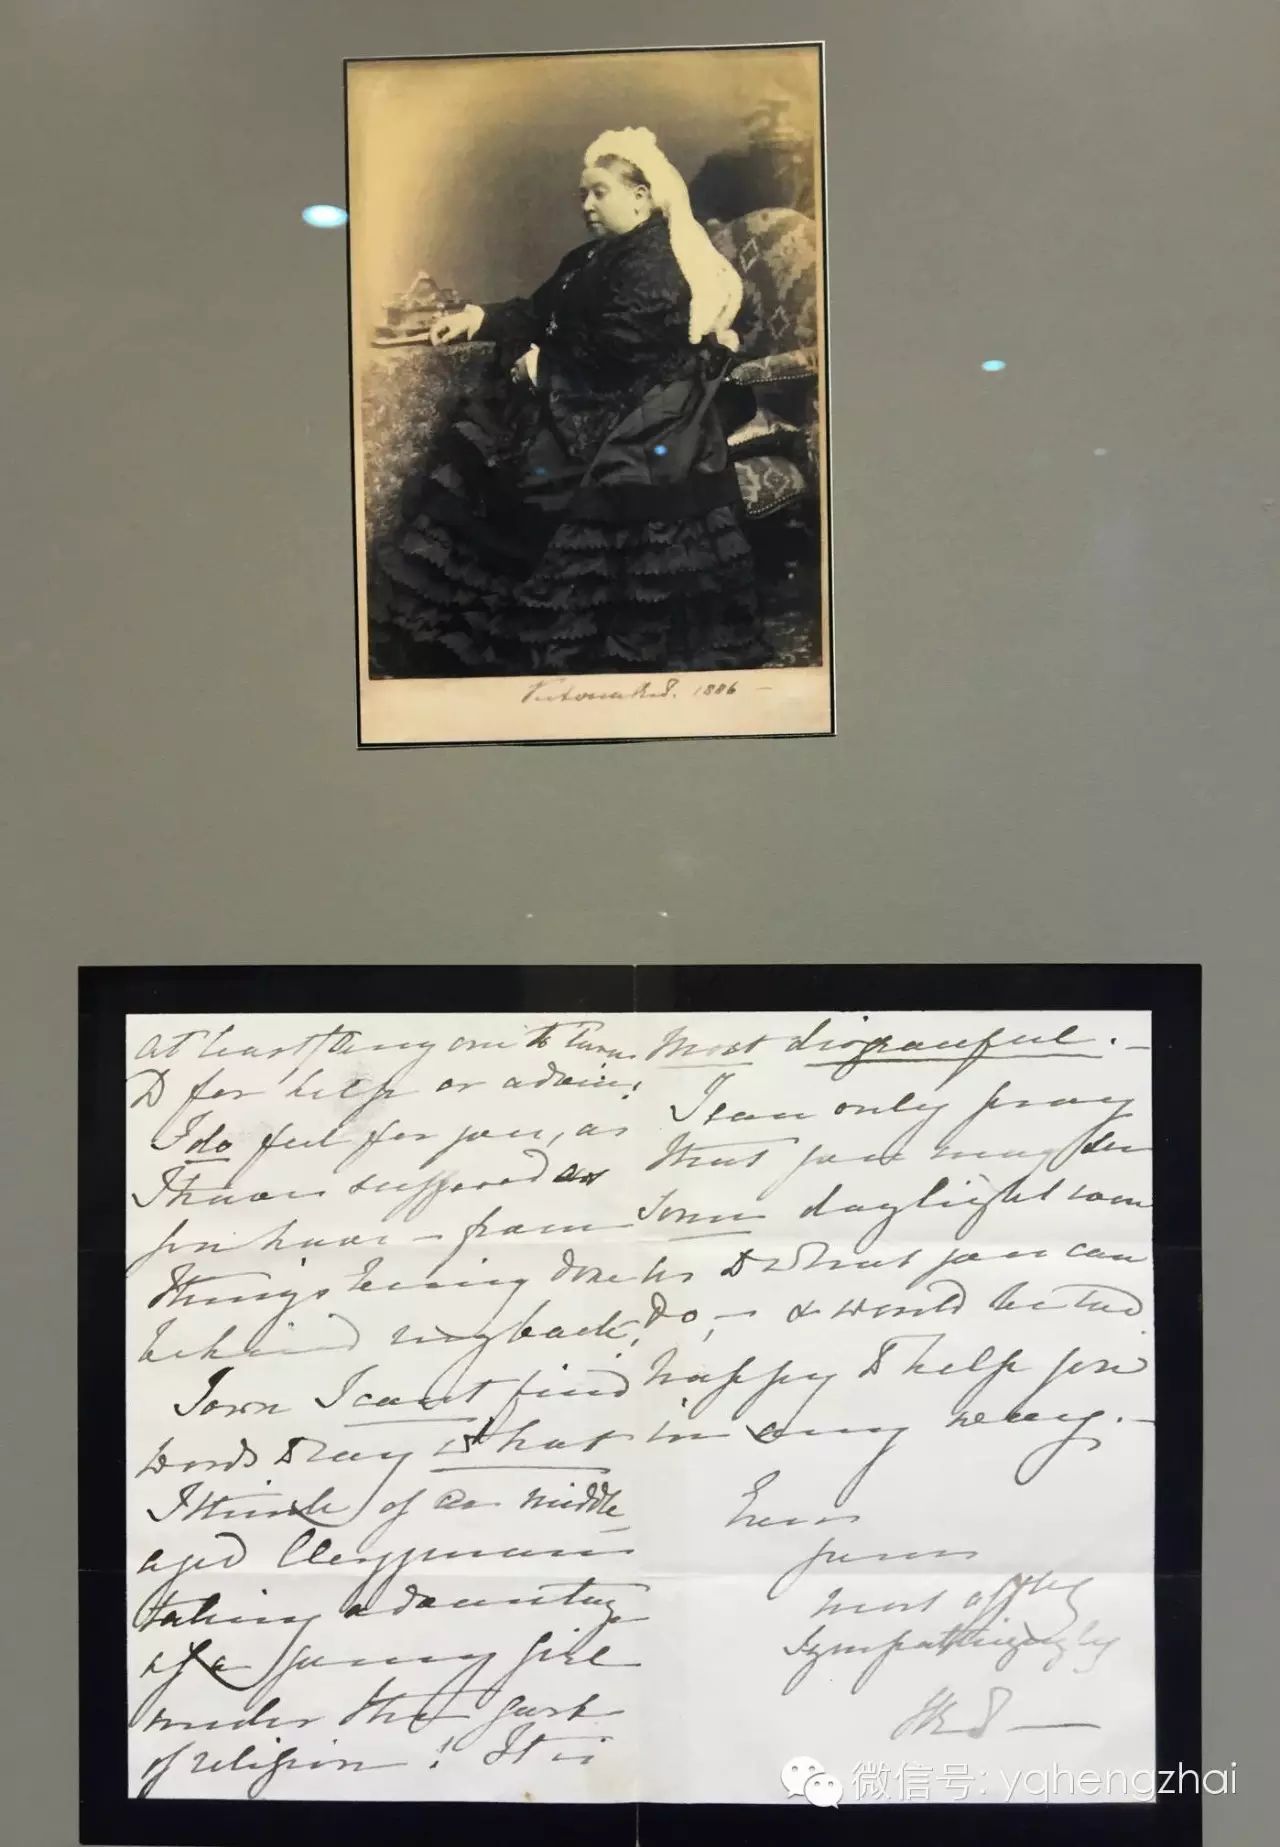 Victoria R I. 1886 —
at least any one to turn
to for help or advice!
I do feel for you, as
I have suffered as
you have – from
things being done
behind my back.
I own I cant find
words to say what
I think of a middle
aged Clergyman
taking advantage
of a young girl
under the garb
of religion! It is
most disgraceful. –
I can only pray
that you may see
some daylight
as to what you can
do, – & would be too
happy to help you
in any way. –
Ever
yours
most affly
sympathizingly
VRI —
微信号: yqhengzhai